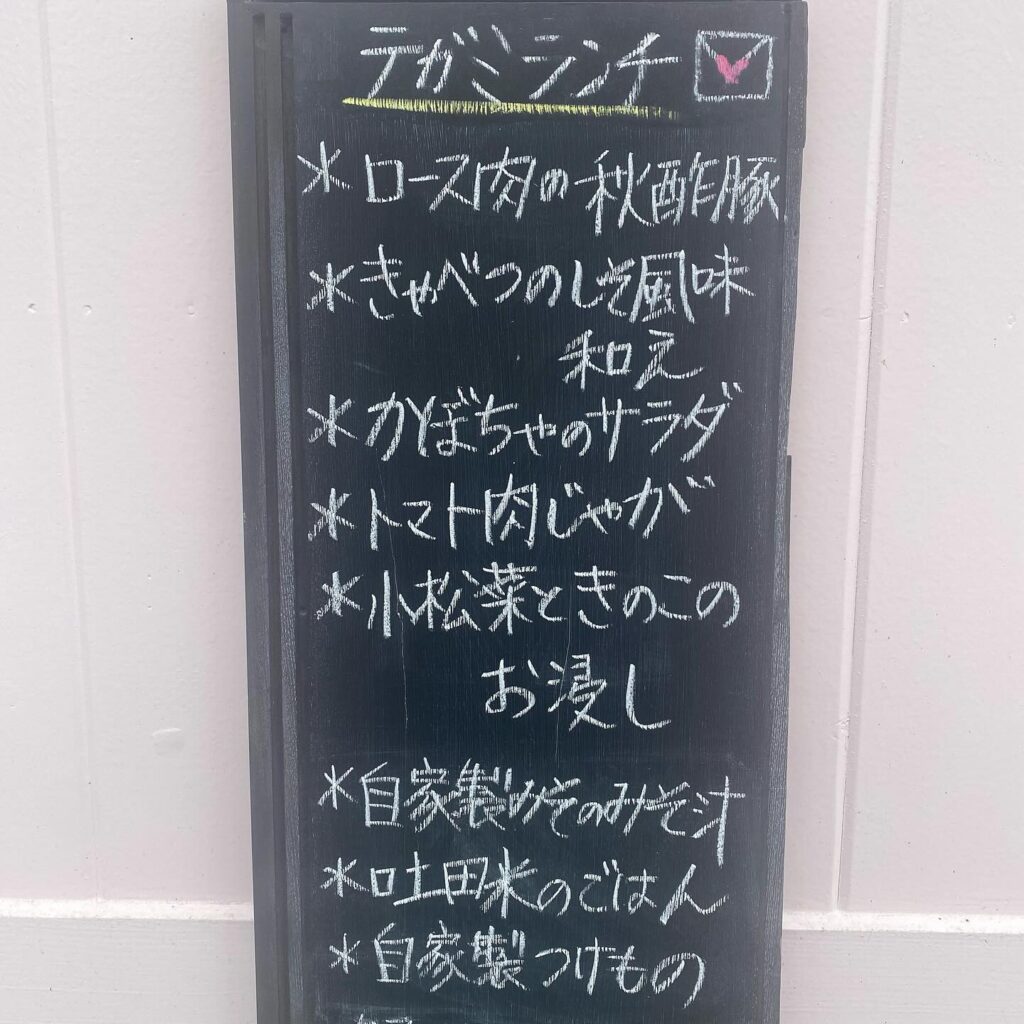 テガミランチ
＊ロース肉の秋酢豚
＊きゃべつのしそ風味
和え
＊かぼちゃのサラダ
＊トマト肉じゃが
＊小松菜ときのこの
お浸し
＊自家製みそのみそ汁
＊吐田米のごはん
＊自家製つけもの